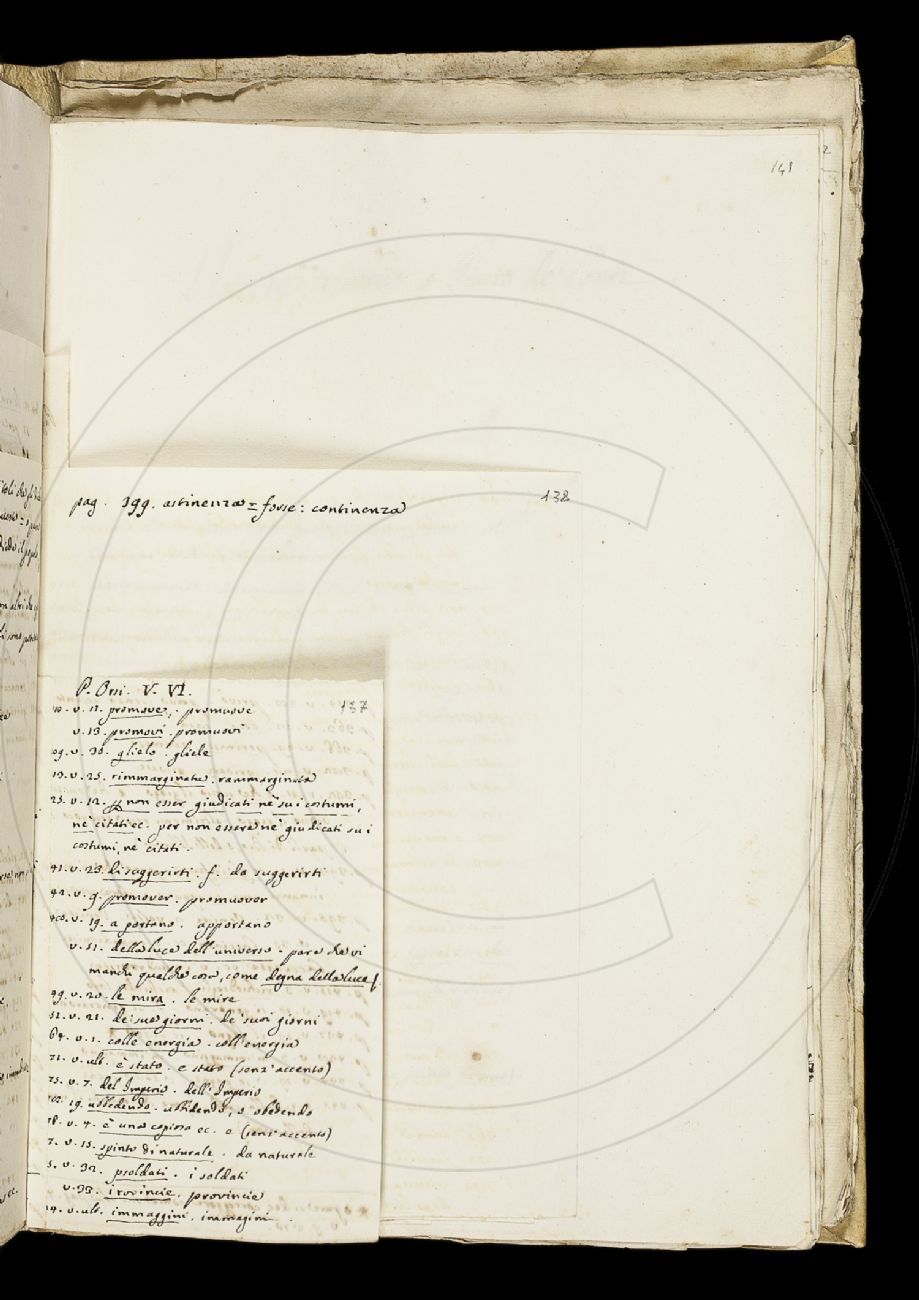 141
pag. 399. astinenza = forse: continenza
138
P. Orsi. V. VI.
137
10. v. 12. promove, . promuove
v. 13. promovi . promuovi
v. 30. glielo . gliele
19. v. 25. rimmarginata . rammarginata
25. v. 12. non esser giudicati nè sui costumi,
nè citati ec. per non essere nè giudicati sui
costumi, nè citati.
41. v. 23. di suggerirti . f. da suggerirti
42. v. 9. promover . promuover
v. 19. a portano . apportano
v. 11. della luce dell'universo . pare che vi
manchi qualche cosa, come degna della luce
49. v. 20. le mira . le mire
52. v. 21. de' sue giorni . de' suoi giorni
64. v. 1. colle energia . coll'energia
71. v. ult. è stato . e stato (senz'accento)
75. v. 7. del Imperio . dell'Imperio
19. ubbedendo . ubbidendo, o obedendo
v. 4. è una copiosa ec. e (senz'accento)
v. 15. spinto di naturale . da naturale
v. 32. psoldati . i soldati
v. 33. irovincie . provincie
v. ult. immaggini . immagini